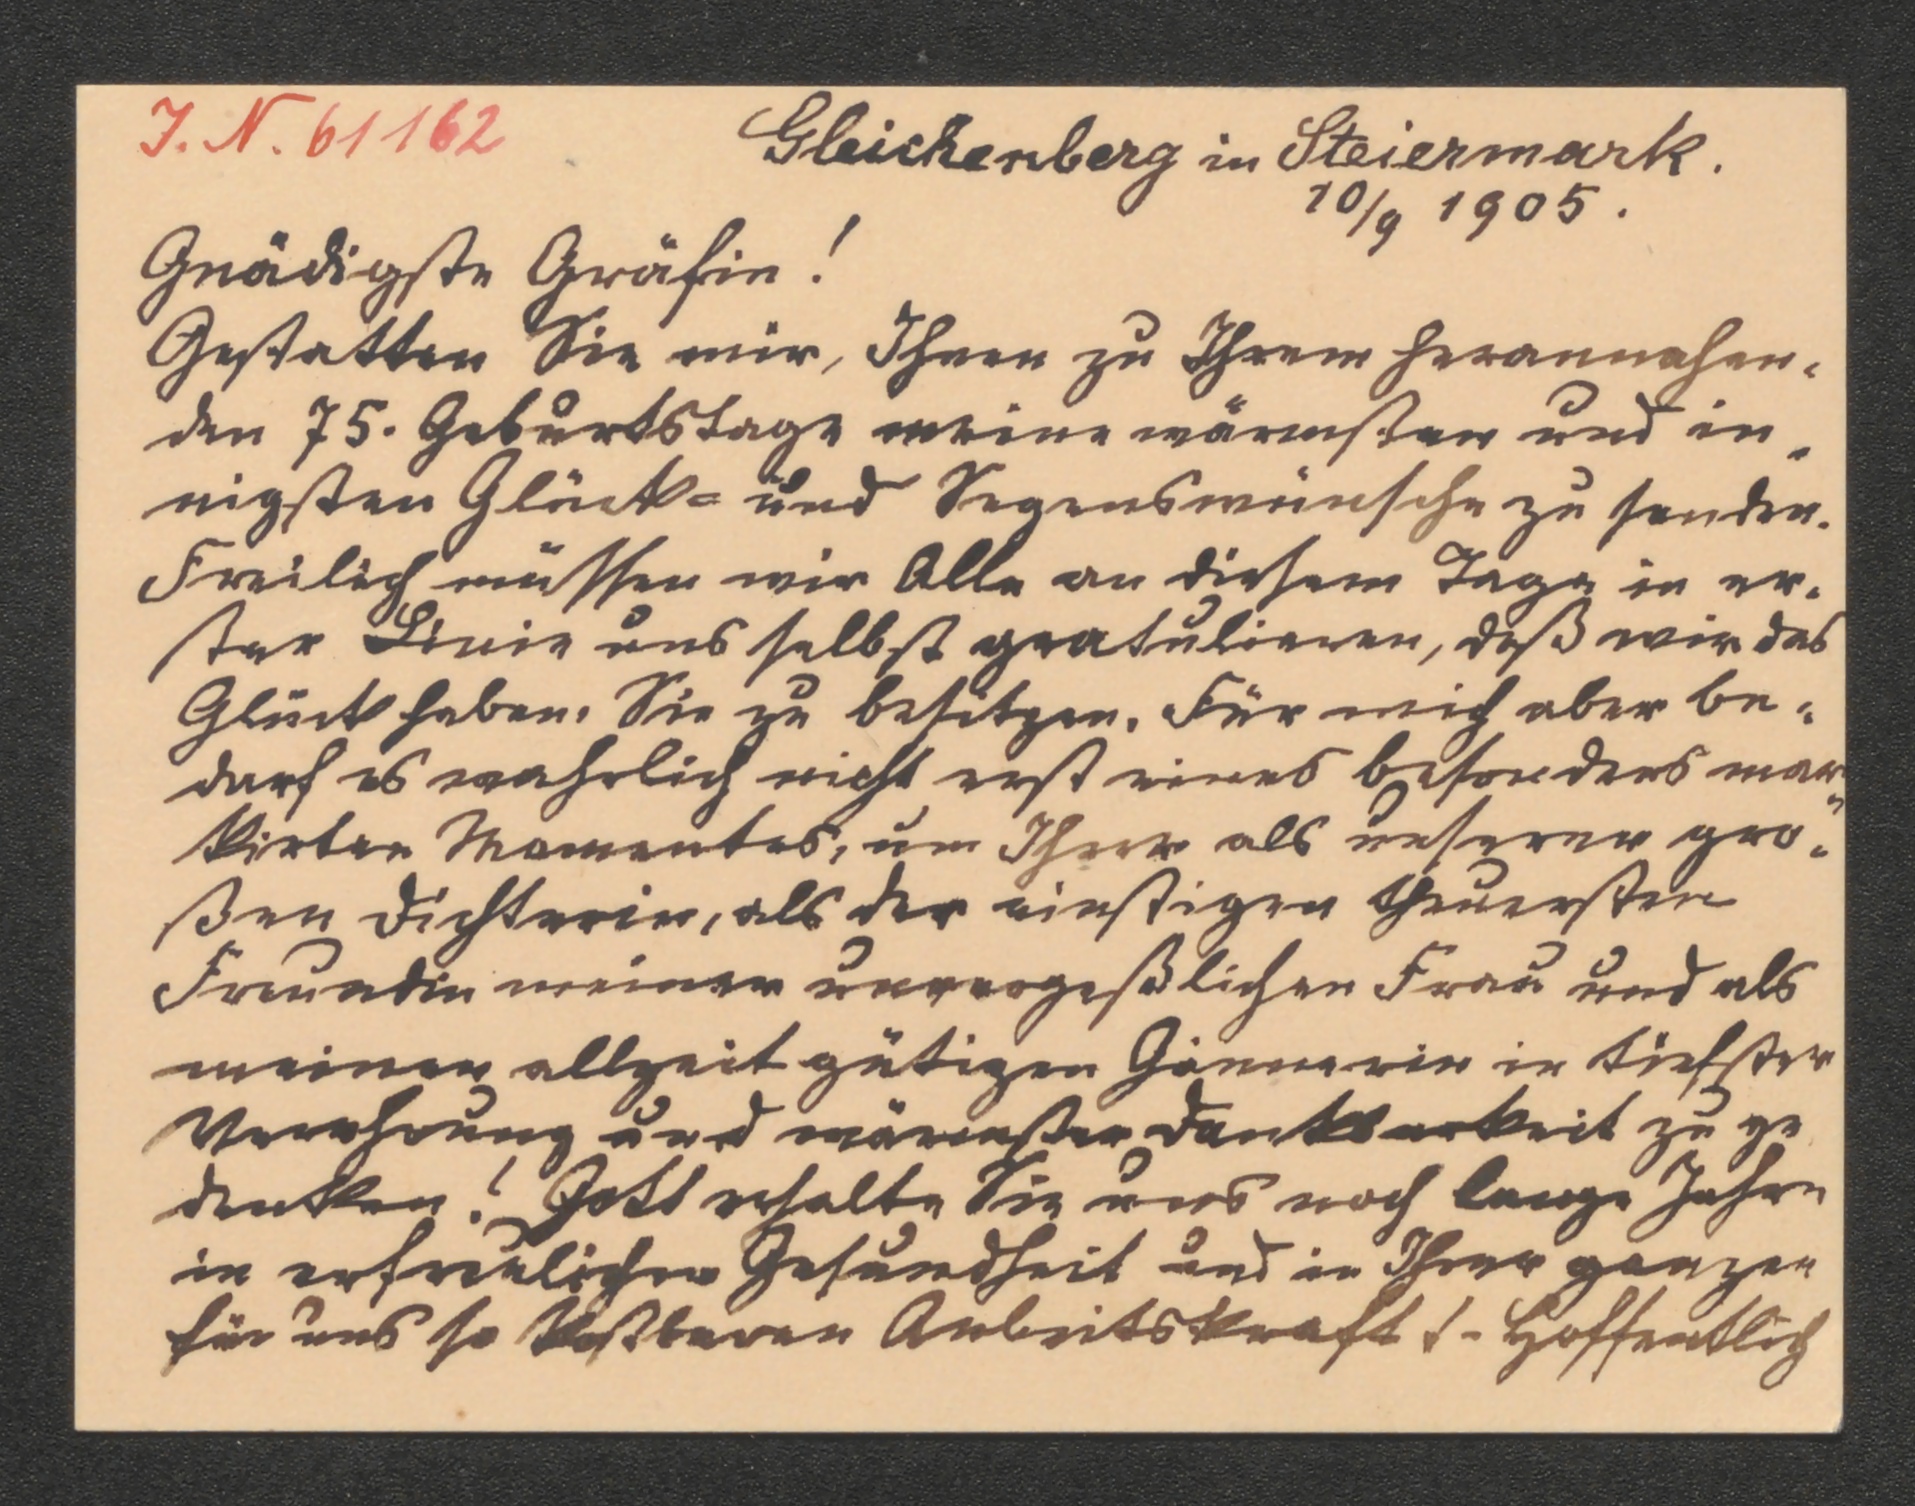 I. N. 61162
Gleichenberg in Steiermark.
10/9 1905.
Gnädigste Gräfin!
Gestatten Sie mir, Ihnen zu Ihrem herannahen-
den 75. Geburtstage meine wärmsten und in-
nigsten Glück- und Segenswünsche zu senden.
Freilich müssen wir Alle an diesem Tage in er-
ster Linie uns selbst gratulieren, daß wir das
Glück haben, Sie zu besitzen. Für mich aber be-
darf es wahrlich nicht erst eines besonders mar-
kirten Momentes, um Ihrer als unserer gro-
ßen Dichterin, als der einstigen theuersten
Freundin meiner unvergeßlichen Frau und als
meiner allzeit gütigen Gönnerin in tiefster
Verehrung und wärmster Dankbarkeit zu ge
denken! Gott erhalte Sie uns noch lange Jahre
in erfreulicher Gesundheit und in Ihrer ganzen
für uns so kostbaren Arbeitskraft! - Hoffentlich